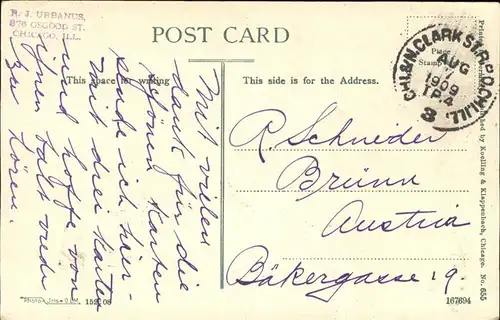 R. J. URBANUS,
876 OSGOOD ST.
CHICAGO, ILL.
POST CARD
This space for writing
This side is for the Address.
Place
Stamp
CHI. & N. CLARK ST. R.P.O. CHI. ILL.
AUG
7
1909
TR.4
3
Mit vielen
dank für die
schönen Karten
sende ich hier-
mit drei Karten
und hoffe von
ihnen bald wieder
zu hören.
R. Schneider
Brünn
Austria
Bäkergasse 19.
Printed
by Koelling & Klappenbach, Chicago. No. 655
152 08
167694